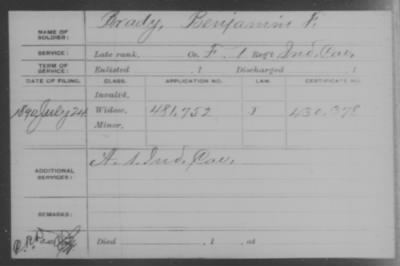 NAME OF SOLDIER: Brady, Benjamin F.
SERVICE: Late rank, Co. F. 1 Reg't Ind. Cav.
TERM OF SERVICE: Enlisted , 1 Discharged , 1
DATE OF FILING. CLASS. APPLICATION NO. LAW. CERTIFICATE NO.
Invalid,
1890 July 24 Widow, 481,752 430,378
Minor,
ADDITIONAL SERVICES: A. 1. Ind. Cav.
REMARKS:
Died , 1 , at